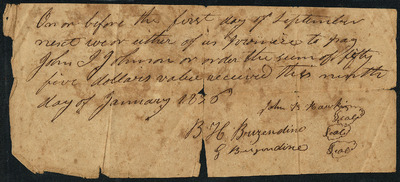 On or before the first day of September
next we or either of us promise to pay
John J Johnson or order the sum of fifty
five dollars value received this ninth
day of January 1856
John B Hawkins
Seal
B H Buzendine Seal
G Buzendine Seal